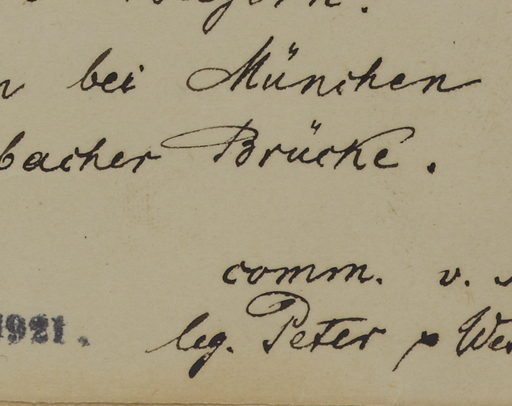 n bei München
bacher Brücke.
comm. v.
1921.
leg. Peter